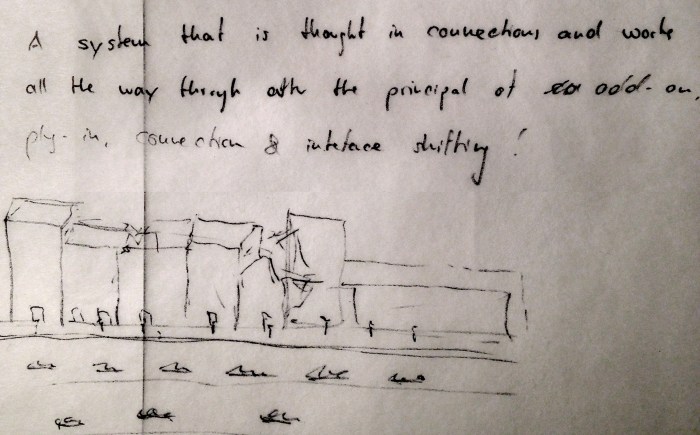 A system that is thought in connections and works
all the way through with the principal of add-on,
plug-in, connection & inteface shifting!